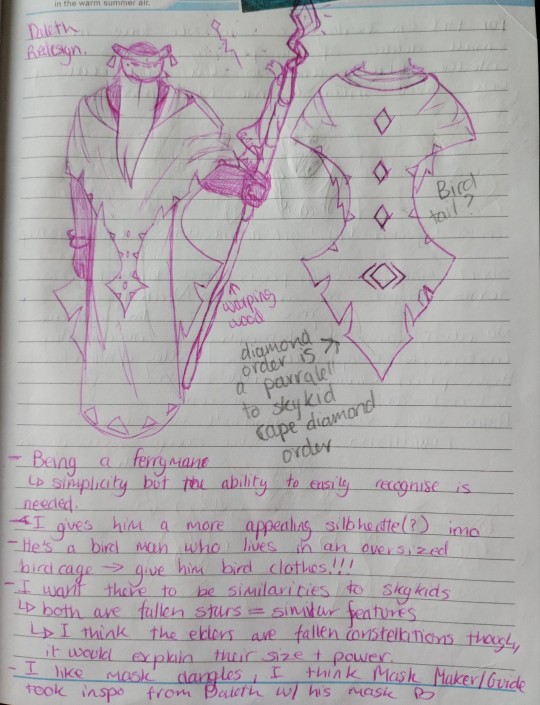 in the warm summer air.
Daleth
Redesign.
Bird
tail?
warping
wood
diamond
order is
a parralell
to skykid
cape diamond
order
- Being a ferryman
↳ simplicity but the ability to easily recognise is
needed.
I gives him a more appealing silhheotte(?) imo
- He's a bird man who lives in an oversized
birdcage → give him bird clothes!!!
- I want there to be similarities to skykids
↳ both are fallen stars = similar features
↳ I think the elders are fallen constellations though,
it would explain their size + power.
- I like mask dangles, I think Mask Maker/Guide
took inspo from Daleth w/ his mask :D